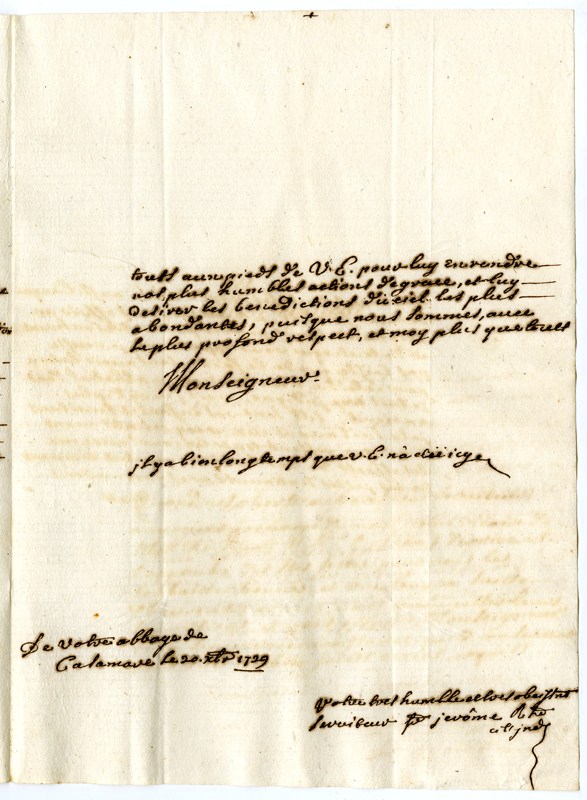 touts aux pieds de V. E. pour luy en rendre
nos plus humbles actions de grace, et luy
desirer les benedictions du ciel les plus
abondantes, puisque nous sommes, avec
le plus profond respect, et moy plus que touts
Monseigneur.
jl y a bien longtemps que V. E. n'a été icy
De votre abbaye de
le 20. xbre 1729
votre tres humble et tres obeisst
serviteur jerôme